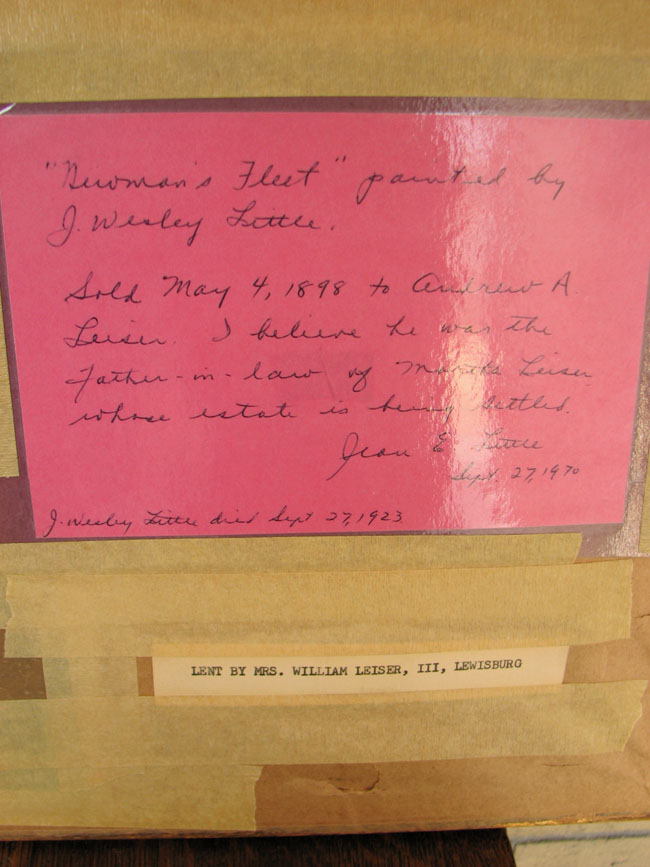 "Newman's Fleet" painted by
J. Wesley Little.
Sold May 4, 1898 to Andrew A.
Leiser. I believe he was the
Father-in-law of Martha Leiser
whose estate is being settled.
Jean E Little
Sept. 27, 1970
J. Wesley Little died Sept 27, 1923
LENT BY MRS. WILLIAM LEISER, III, LEWISBURG